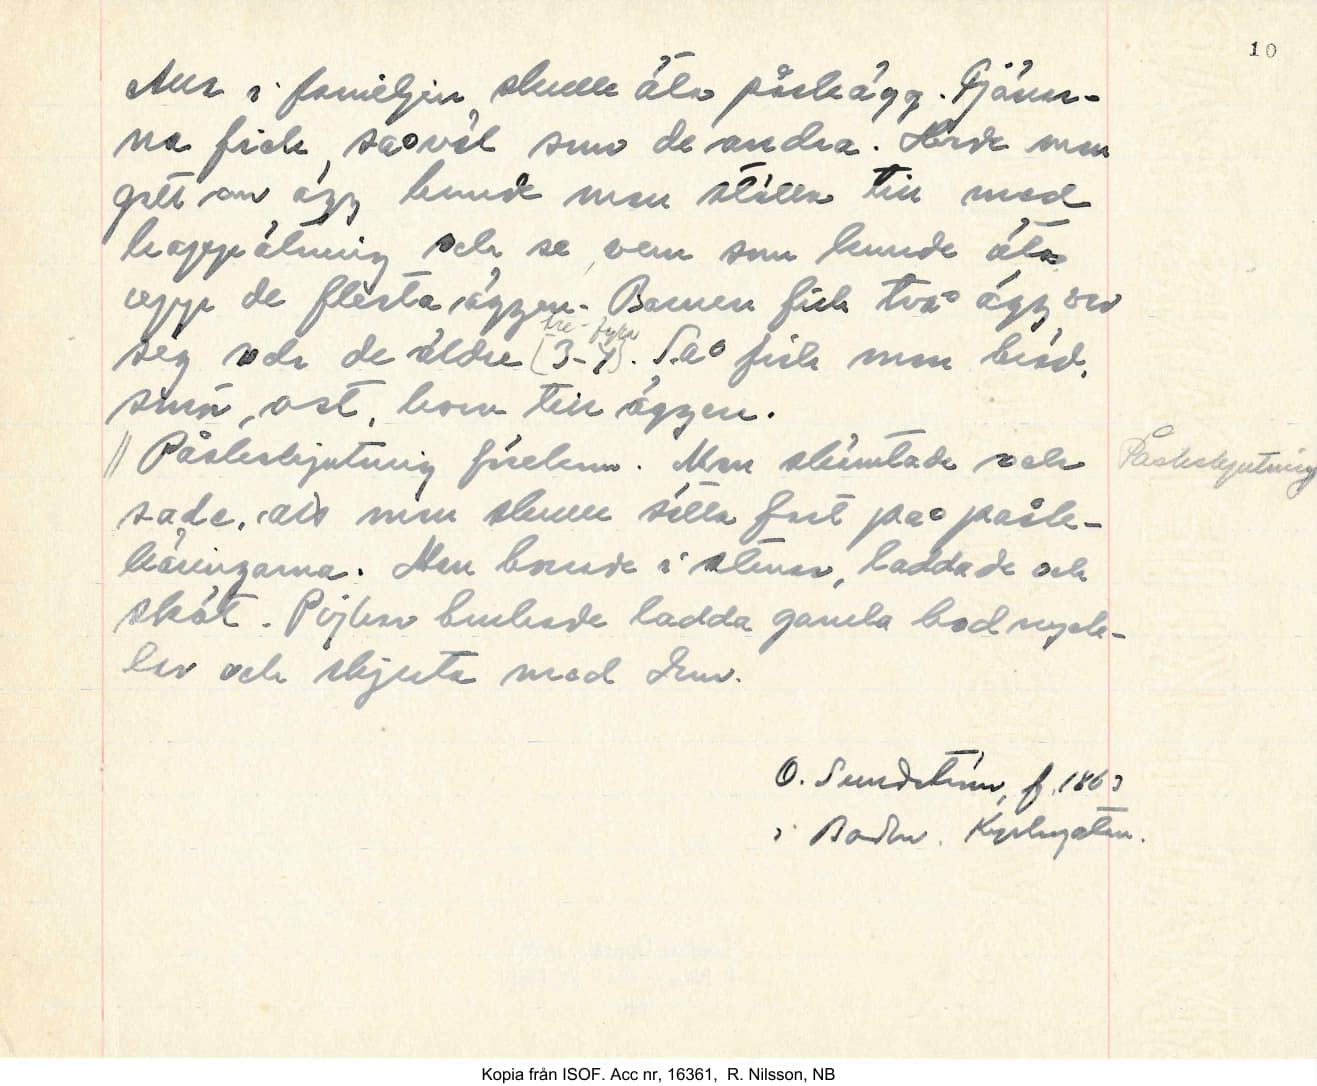 10
Alla i familjen skulle äta påskägg. Tjänar-
na fick såväl som de andra. Hade man
gott om ägg kunde man ställa till med
kappätning och se vem som kunde äta
upp de flesta äggen. Barnen fick två ägg var
tre - fyra
sig och de äldre [3-4]. Så fick man bröd,
smör, ost, korv till äggen.
// Påskskjutning förekom. Man skämtade och
Påskskjutning
sade, att man skulle sätta fart på påsk-
käringarna. Man borrade i stenar, laddade och
sköt. Pojkar brukade ladda gamla bodnyck-
lar och skjuta med dem.
O. Sundström, f. 1863
i Boden. Kyrkogatan.
Kopia från ISOF. Acc nr, 16361, R. Nilsson, NB